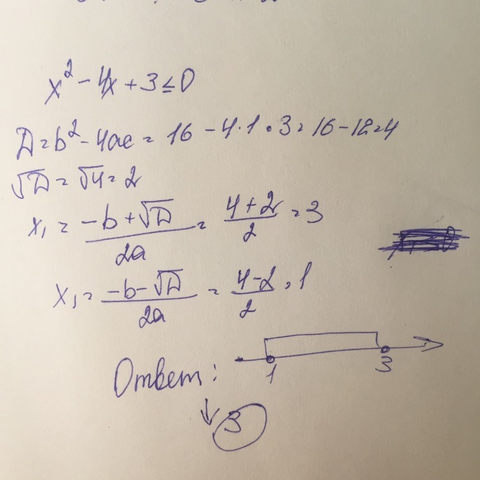 x² - 4x + 3 ≤ 0
D = b² - 4ac = 16 - 4·1·3 = 16 - 12 = 4
√D = √4 = 2
x₁ = (-b + √D) / 2a = (4 + 2) / 2 = 3
x₁ = (-b - √D) / 2a = (4 - 2) / 2 = 1
Ответ:
1 3
3